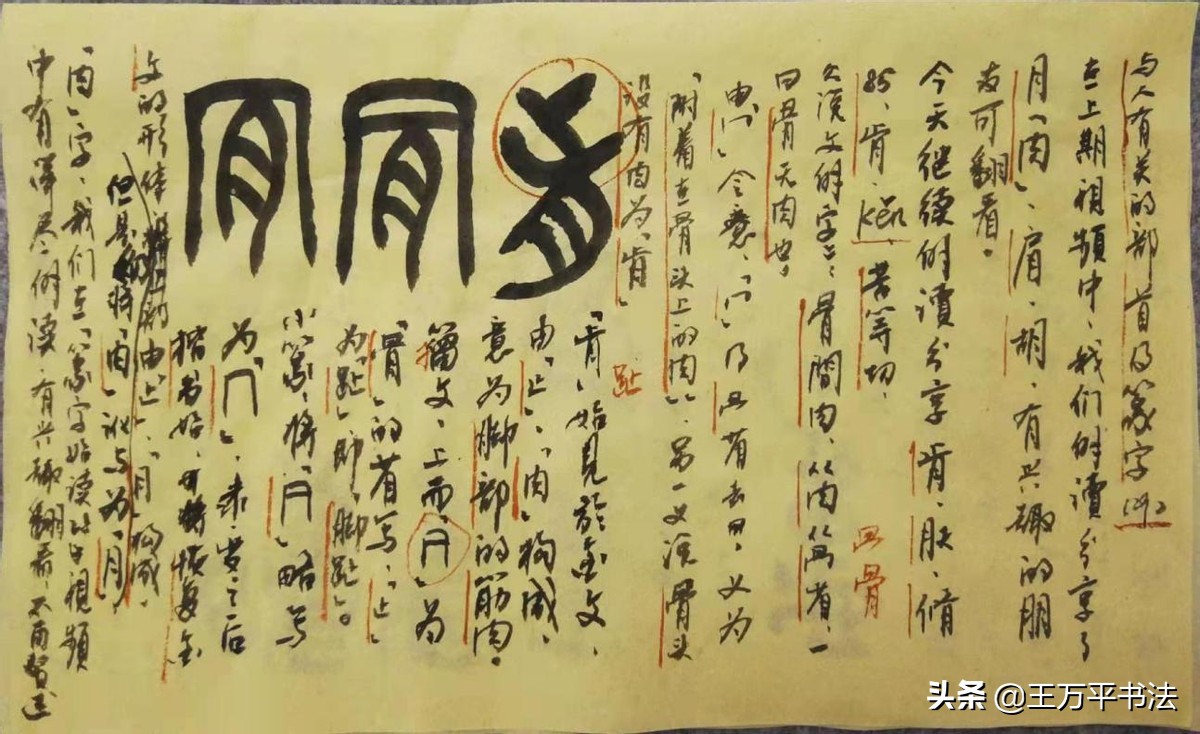 与人有关的部首及篆字
在上期视频中、我们解读分享了
月「肉」、肩、胡、有兴趣的朋
友可翻看。
今天继续解读分享肯、肤、脩
85、肯、kěn、苦等切、
说文解字：骨间肉、肎肎箸、一
曰骨无肉也。
冎骨
「附着在骨头上的肉」、另一义没骨头
没有肉为「肯」
「肯」始见于金文、
由「止」、「肉」构成、
意为脚部的筋肉。
籀文、上面「冂」为
「骨」的省写、「止」
为「趾」即「脚趾」。
趾
小篆、将「冂」略写
为「冖」、隶变之后
楷书
文的形体
由「止」、「月」构成、
但是将「肉」讹写为「月」
「肉」字、我们在「篆字解读」视频
中有详尽解读、有兴趣翻看、不再赘述
头条 @王万平书法